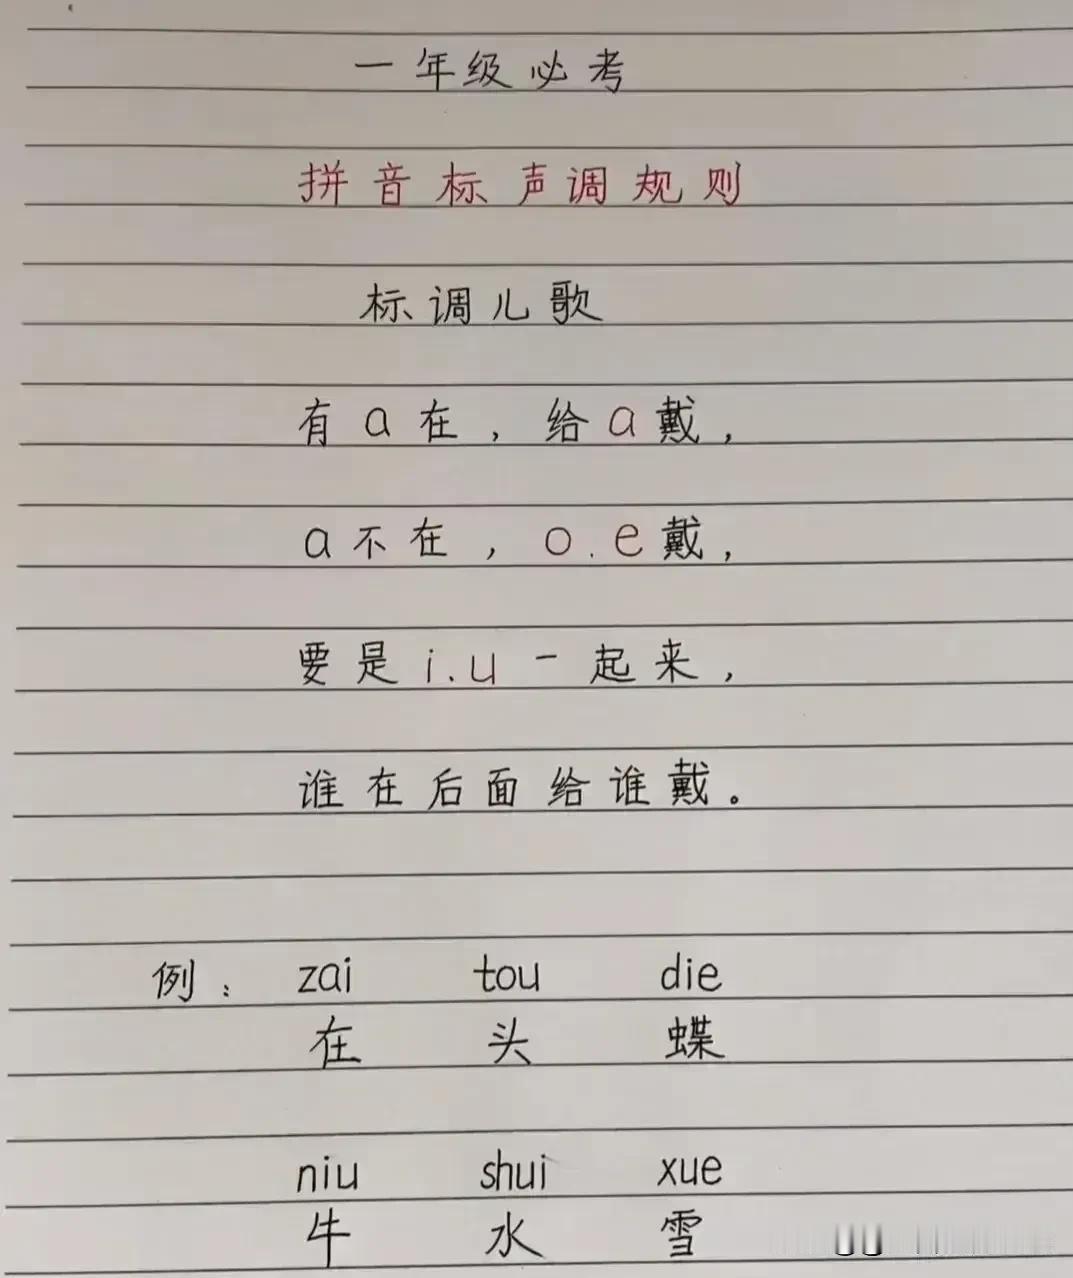 一年级必考
拼音标声调规则
标调儿歌
有a在，给a戴，
a不在，o.e戴，
要是i.u一起来，
谁在后面给谁戴。
例： zai tou die
在 头 蝶
niu shui xue
牛 水 雪